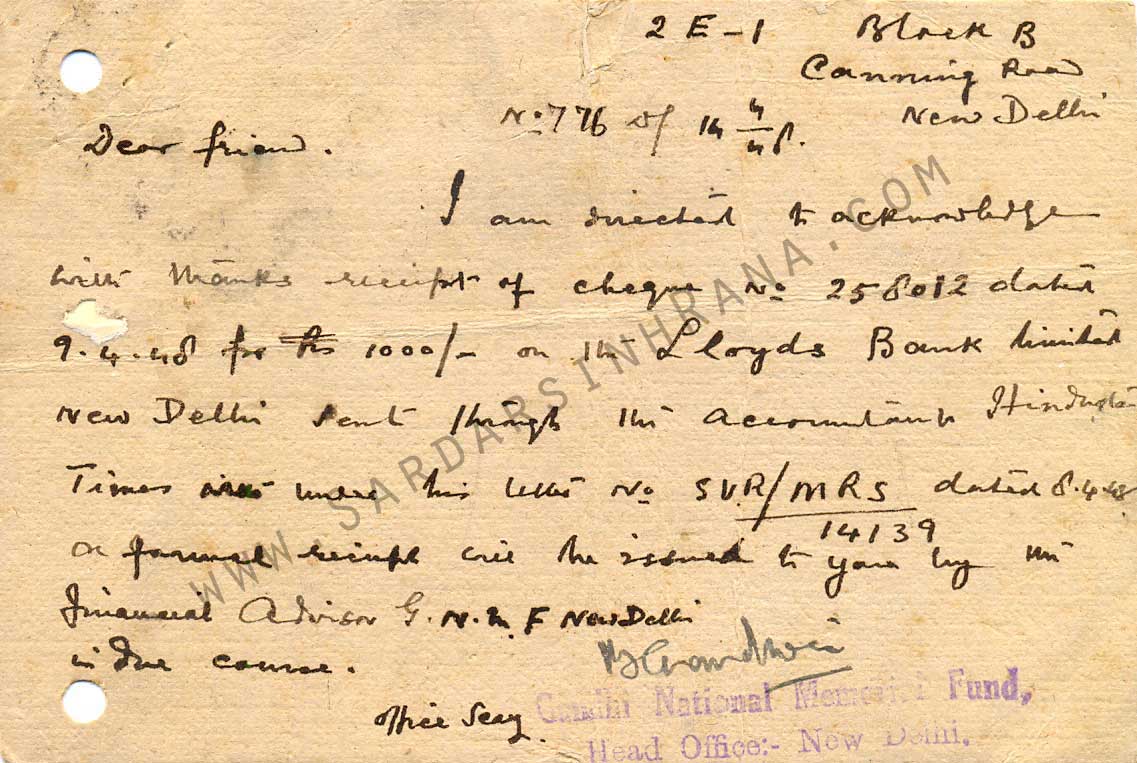 2 E-1 Block B
Canning Road
New Delhi
No 776 of 14/4/48.
Dear friend.
I am directed to acknowledge
with thanks receipt of cheque No 258012 dated
9.4.48 for Rs 1000/- on the Lloyds Bank limited
New Delhi sent through the Accountant Hindustan
Times under his letter No SVR/MRS dated 8.4.48
14139
a formal receipt will be issued to you by the
Financial Advisor G.N.M.F New Delhi
in due course.
office Secy
Gandhi National Memorial Fund,
Head Office:- New Delhi.
WWW.SARDARSINHRANA.COM